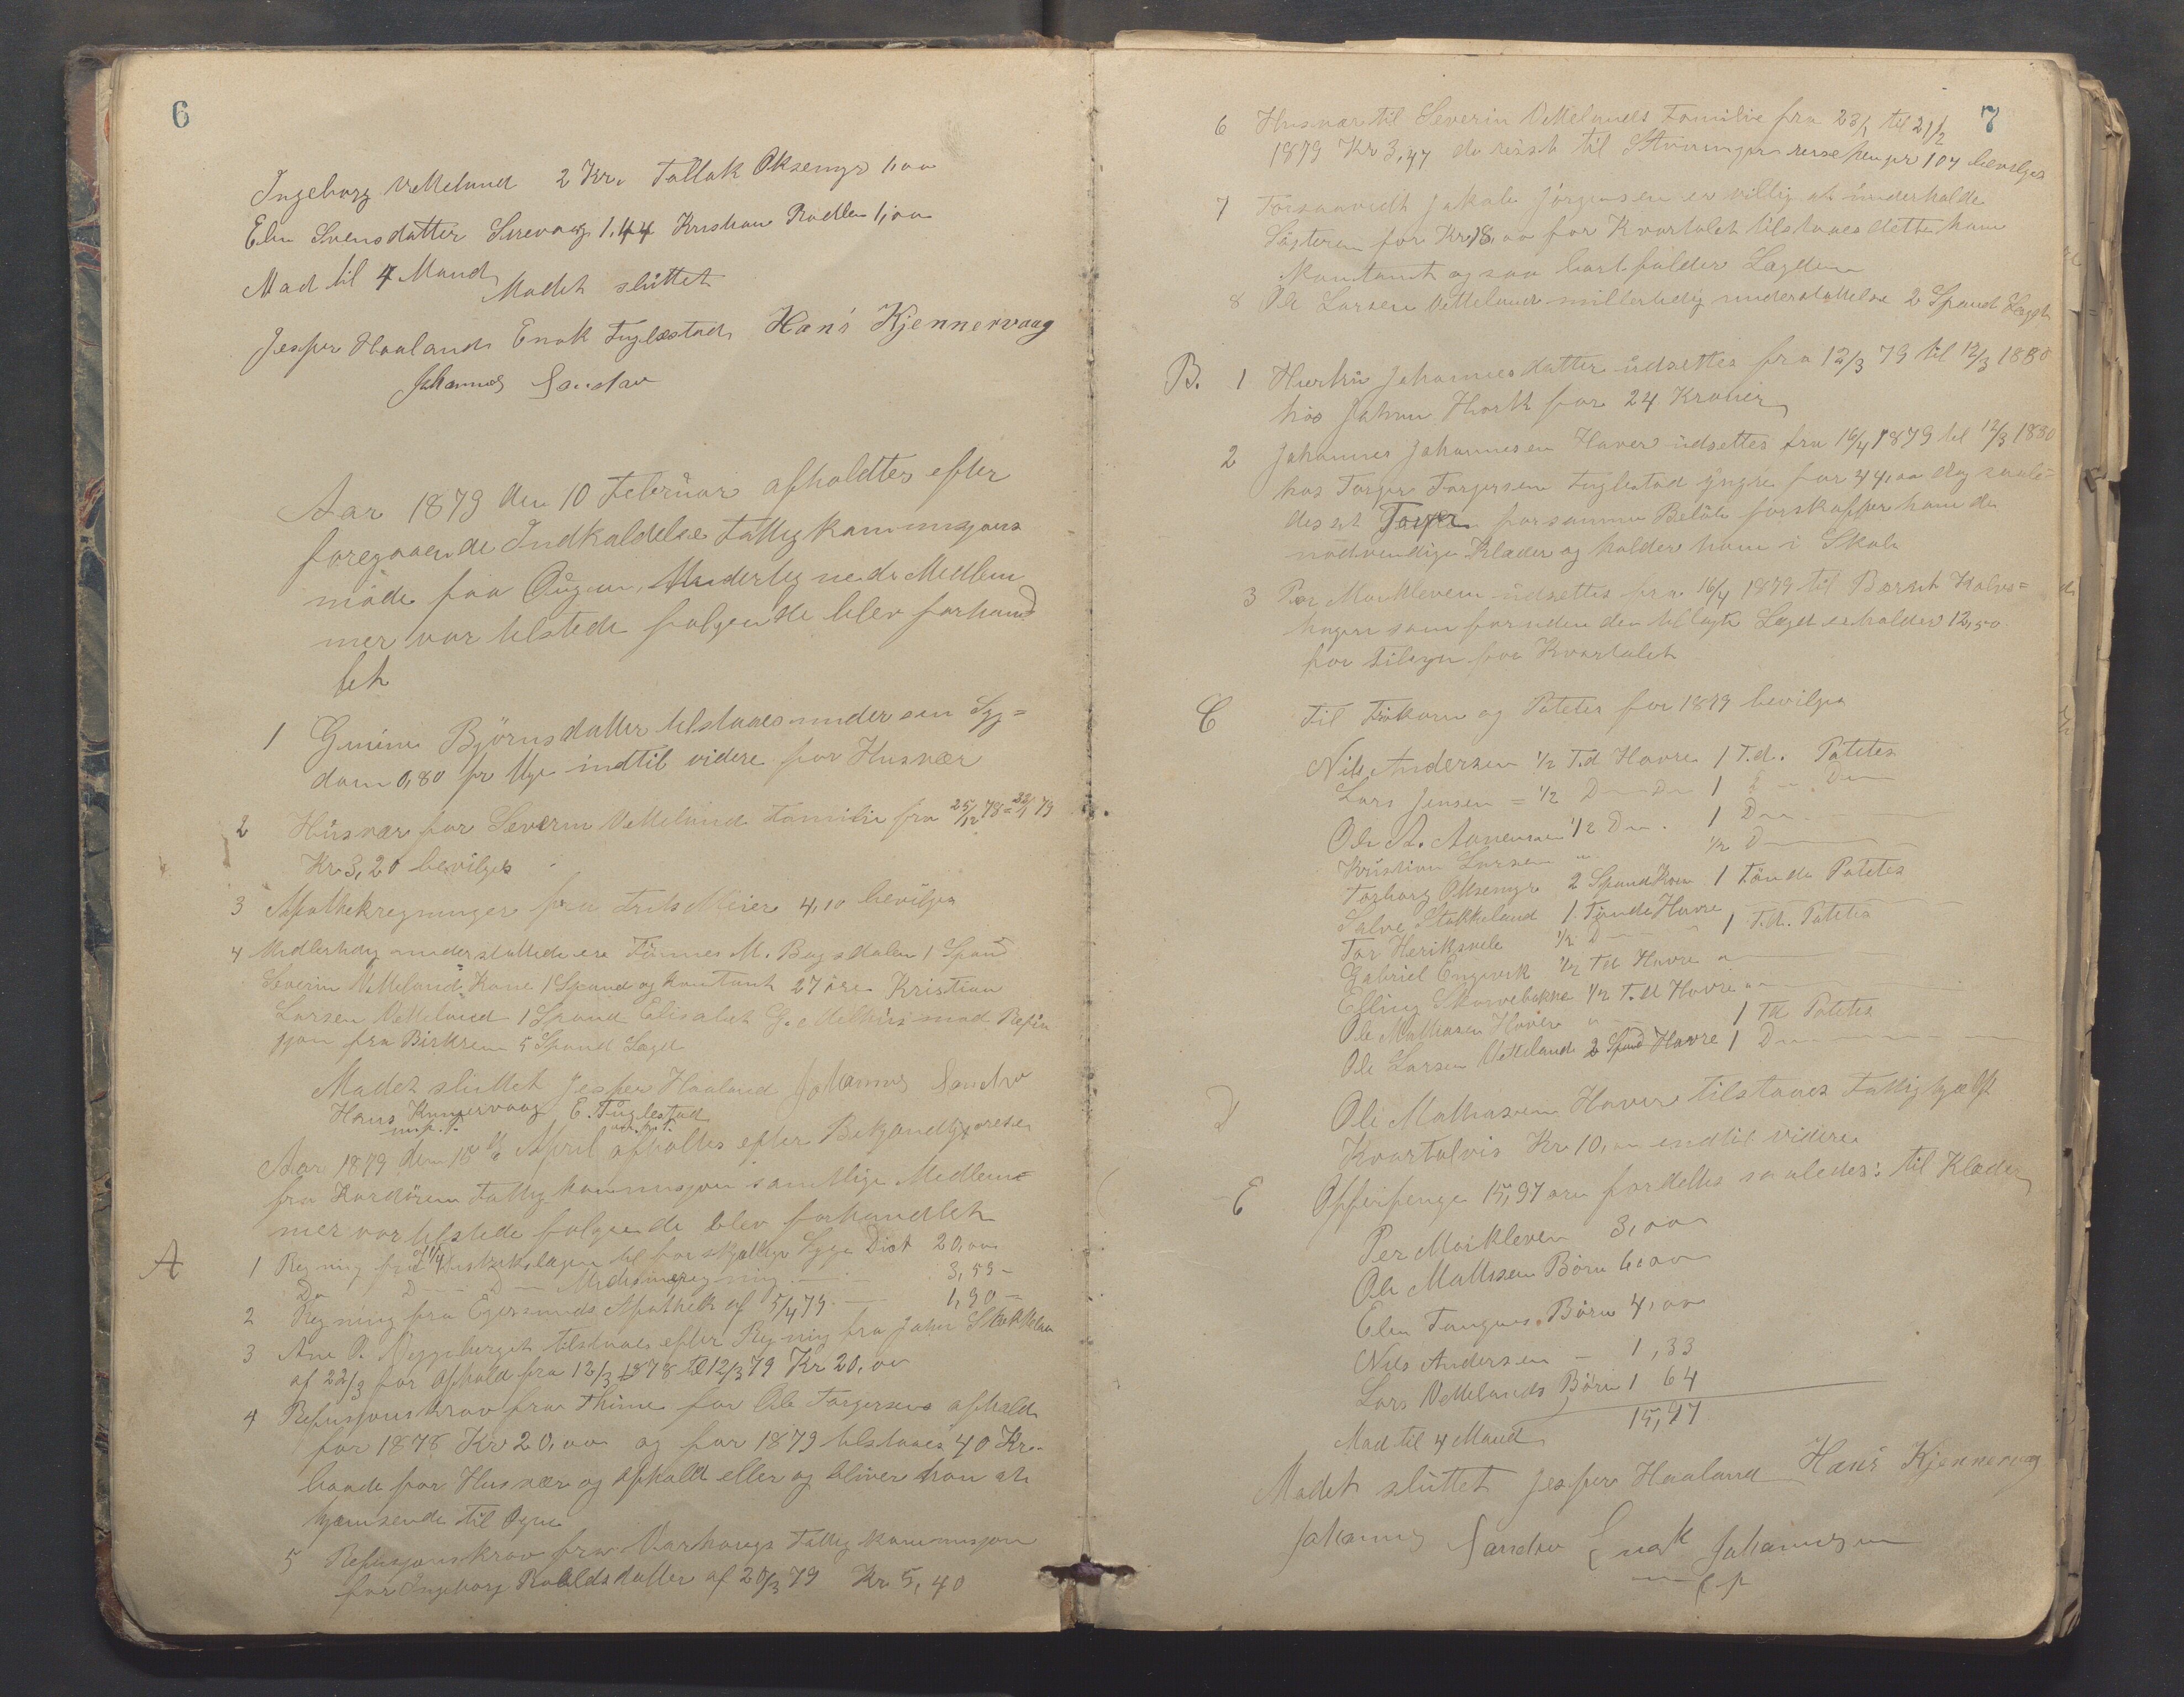 6
Ingeborg Vetteland 2 Kr. Tallak Oksemyr 1,00
Elen Svensdatter Sirevaag 1.44 Kristian Rodlen 1,00
Mad til 4 Mand
Mødet sluttet
Jesper Haaland Enok Fuglestad Hans Kjennervaag
Johannes Sandvv
Aar 1879 den 10 Februar afholdtes efter
foregaaende Indkaldelse Fattigkommisjons
møde paa Ougnu. Underteg nede Medlem
mer var tilstede følgende blev forhand
let
1 Gunine Bjørnsdatter tilstaaes under sin Syg=
dom 0,80 pr Uge indtil videre for Husvær
2 Husvær for Severin Vetteland Familie fra 25/12 78 = 22/1 79
Kr 3,20 bevilges
3 Apothekregninger fra Frits Meier 4,10 bevilges
4 Midlertidig understøttede ere Tønnes M. Bagsdalen 1 Spand
Severin Vetteland Kone 1 Spand og kontant 27 øre Kristian
Larsen Vetteland 1 Spand Elisabet mod Refu
sjon fra Birkrem 5 Spand Lægd
Mødet sluttet Jesper Haaland Johannes Sandvv
Hans Kjennervaag E. Fuglestad
m. p. P.
Aar 1879 den 16de April afholtes efter Bekjendtgjørelse
fra Kordøren Fattigkommisjon samtlige Medlem=
mer var tilstede følgende blev forhandlet
A
1 Regning fra Distriktslægen til forskjellige Syge Diæt 20,00
Do D D Medisinregning 3,59 -
2 Regning fra Egersunds Apothek af 5/4 79. 1,90 -
3 Ane P. Myggeberget tilstaaes efter Regning fra John Stokkelan
af 22/3 for Ophold fra 12/3 1878 til 12/3 79 Kr 20,00
4 Refusjonskrav fra Thime for Ole Torgersens ophold
for 1878 Kr 20,00 og for 1879 tilstaaes 40 Kr.
baade for Husvær og Ophold eller og bliver han at
hjemsende til Ogne
5 Refusjonskrav fra Varhougs Fattigkommisjon
for Ingeborg Roaldsdatter af 20/3 79 Kr. 5,40
7
6 Husvær til Severin Vettelands Familie fra 23/1 til 21/2
1879 Kr 3,47 do reist til Stavanger reise penger 107 bevilges
7 Forsaavidt Jakob Jørgensen er villig at underholde
Søsteren for Kr 18,00 for Kvartalet tilstaaes dette ham
Kontant og saa bortfalder Lægden
8 Ole Larsen Vetteland midlertidig understøttelse 2 Spand Lægd
B. 1 Johannesdatter udsettes fra 12/3 79 til 12/3 1880
hos Johan Hork for 24 Kroner
2 Johannes Johannesen Haver udsettes fra 16/4 1879 til 12/3 1880
hos Torger Torgersen Fuglestad yngre for 44,00 dog saale-
des at Torger for samme Beløb forskaffer ham de
nødvendige Klæder og holder ham i Skole
3 Per Morkleven udsettes fra 16/4 1879 til Berent Kalvs=
hagen som foruden den tillagte Lægd erholder 12,50
for tilsyn for Kvartalet
C Til Frøkorn og Poteter for 1879 bevilges
Nils Andersen 1/2 T.d Havre 1 T.d. Poteter
Lars Jensen = 1/2 D Do 1 D Do
Ole A. Aanensen 1/2 Do. 1 Do
Kristian Larsen " 1/2 D
Torborg Oksemyr 2 Spand Korn 1 Tønde Poteter
Salve Stokkeland 1 Tønde Havre
Tor Heriksvele 1/2 D 1 T.d. Poteter
Gabriel Engevik 1/2 Td Havre "
Elling Skarvebakke 1/2 T.d Havre "
Ole Mathiesen Haver " 1 Td Poteter
Ole Larsen Vetteland 2 Spand Havre 1 D
D Ole Mathiesen Haver tilstaaes Fattighjælp
Kvartalvis Kr 10,00 indtil videre
E Offerpenge 15,97 øre fordeltes saaledes: til Klæder
Per Morkleven 3,00
Ole Mathisen Børn 6,00
Elen Tanguns. Børn 4,00
Nils Andersen - 1,33
Lars Vettelands Børn 1 64
15,97
Mad til 4 Mand
Mødet sluttet Jesper Haaland Hans Kjennervag
Johannes Sandvv Enok Johannesen